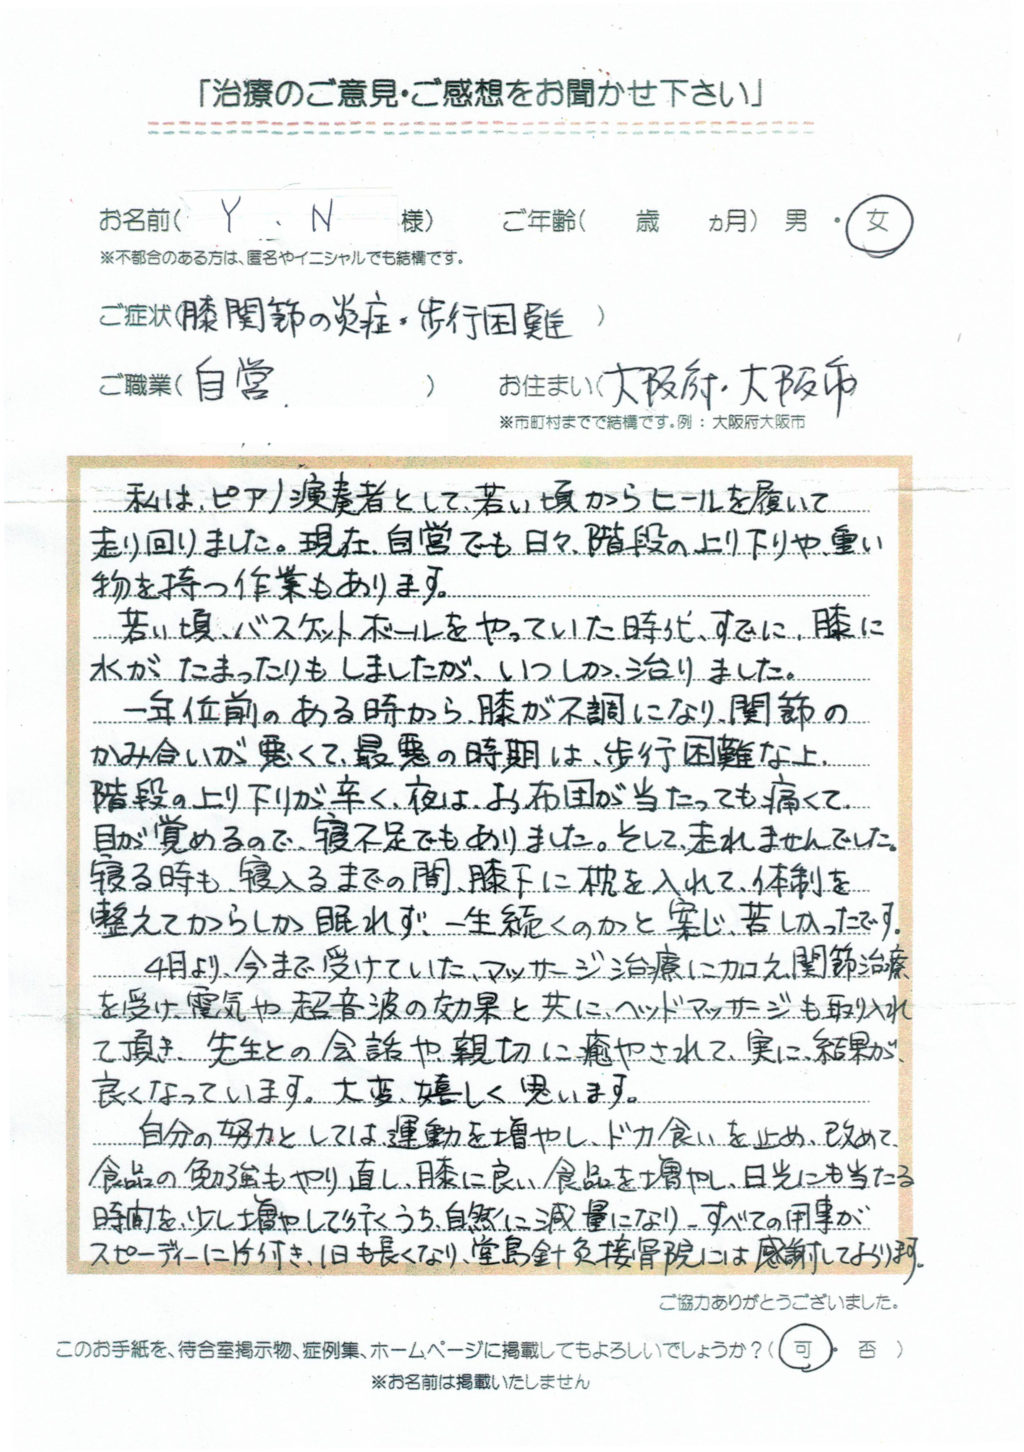 「治療のご意見・ご感想をお聞かせ下さい」
お名前( Y . N 様) ご年齢( 歳 ヵ月) 男 ・ 女
※不都合のある方は、匿名やイニシャルでも結構です。
ご症状(膝関節の炎症・歩行困難 )
ご職業( 自営 ) お住まい(大阪府・大阪市
※市町村までで結構です。例：大阪府大阪市
私は、ピアノ演奏者として、若い頃からヒールを履いて
走り回りました。現在、自営でも日々、階段の上り下りや、重い
物を持つ作業もあります。
若い頃、バスケットボールをやっていた時代、すでに、膝に
水がたまったりもしましたが、いつしか、治りました。
一年位前のある時から、膝が不調になり、関節の
かみ合いが悪くて、最悪の時期は、歩行困難な上、
階段の上り下りが辛く、夜は、お布団が当たっても痛くて、
目が覚めるので、寝不足でもありました。そして、走れませんでした。
寝る時も、寝入るまでの間、膝下に枕を入れて、体制を
整えてからしか眠れず、一生続くのかと案じ、苦しかったです。
4日より、今まで受けていた、マッサージ治療に加え、関節治療
を受け、電気や超音波の効果と共に、ヘッドマッサージも取り入れ
て頂き、先生との会話や、親切に癒やされて、実に、結果が、
良くなっています。大変、嬉しく思います。
自分の努力としては、運動を増やし、ドカ食いを止め、改めて、
食品の勉強もやり直し、膝に良い食品を増やし、日光にも当たる
時間を、少し増やして行くうち、自然に減量になり、すべての用事が
スピーディーに片付き、1日も長くなり、堂島針灸接骨院には感謝しております。
ご協力ありがとうございました。
このお手紙を、待合室掲示物、症例集、ホームページに掲載してもよろしいでしょうか？( 可 ・ 否 )
※お名前は掲載いたしません